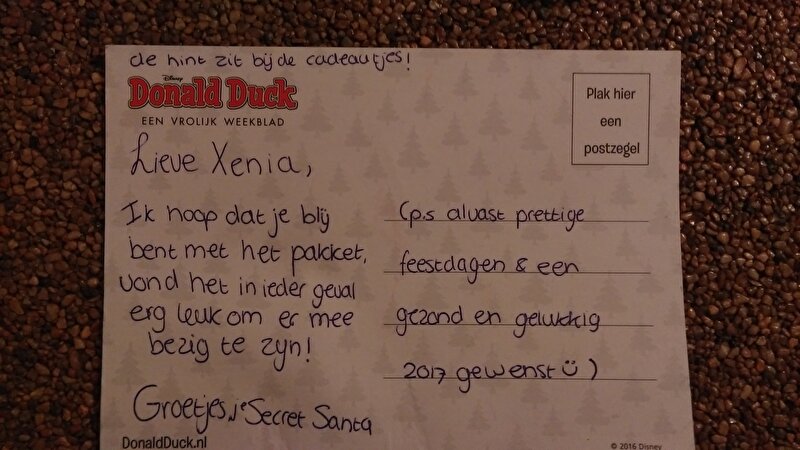 de hint zit bij de cadeautjes!
Disney
Donald Duck
EEN VROLIJK WEEKBLAD
Plak hier
een
postzegel
Lieve Xenia,
Ik hoop dat je blij
bent met het pakket,
vond het in ieder geval
erg leuk om er mee
bezig te zijn!
Groetjes, je Secret Santa
(p.s alvast prettige
feestdagen & een
gezond en gelukkig
2017 gewenst ☺)
DonaldDuck.nl
© 2016 Disney